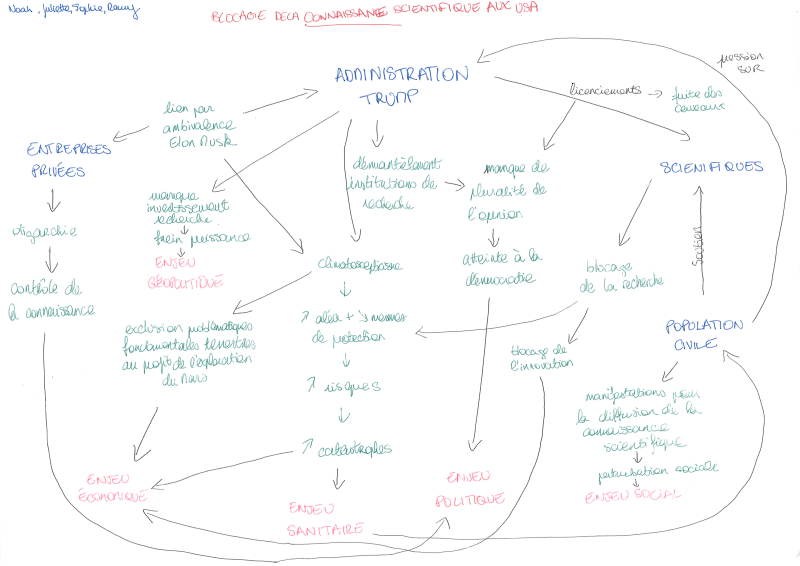 Noah, Juliette, Sophie, Romy
BLOCAGE DE LA CONNAISSANCE SCIENTIFIQUE AUX USA
pression
SUR
ADMINISTRATION
TRUMP
licenciements → fuite des
cerveaux
lien par
ambivalence
Elon Musk
ENTREPRISES
PRIVÉES
démantèlement
institutions de
recherche
manque de
pluralité de
l'opinion
SCIENIFIQUES
manque
investissement
recherche
frein puissance
ENJEU
GÉOPOLITIQUE
oligarchie
contrôle de
la connaissance
climatoscepticisme
atteinte à la
démocratie
blocage
de la recherche
soutien
exclusion problématiques
fondamentales terrestres
au profit de l'exploration
de Mars
↗ aléa + ↘ mesures
de protection
↗ risques
↗ catastrophes
blocage de
l'innovation
POPULATION
CIVILE
manifestations pour
la diffusion de la
connaissance
scientifique
perturbation sociale
ENJEU SOCIAL
ENJEU
ÉCONOMIQUE
ENJEU
SANITAIRE
ENJEU
POLITIQUE